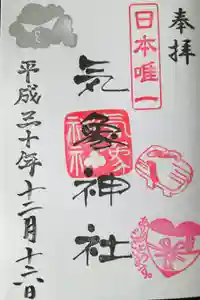 奉拝
日本唯一
気象神社
平成三十年十二月十六日